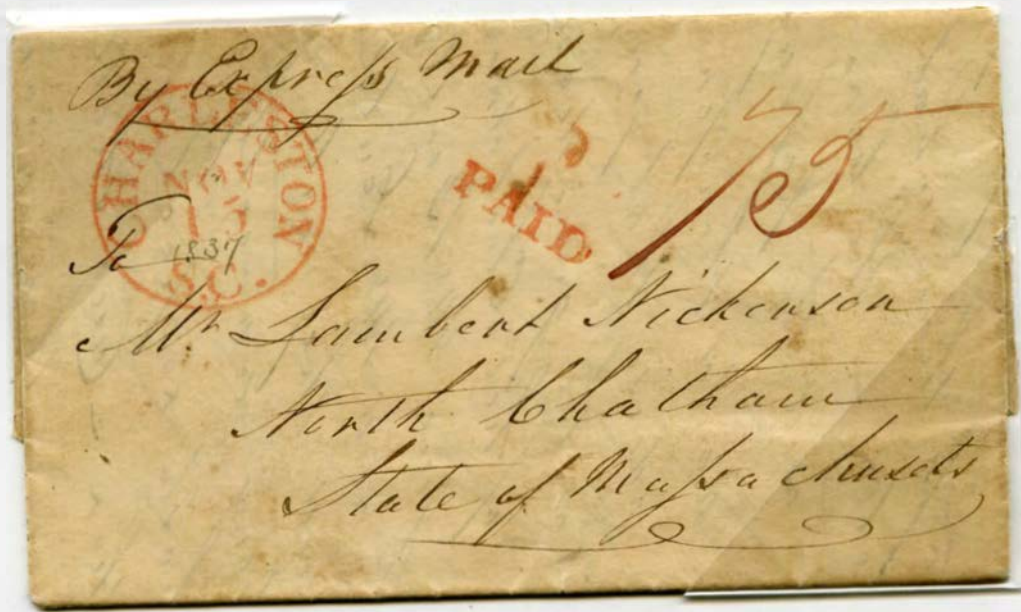 By Express Mail
CHARLESTON
NOV
15
S.C.
1837
PAID
75
To
Mr Lambert Nickerson
North Chatham
State of Massachusets